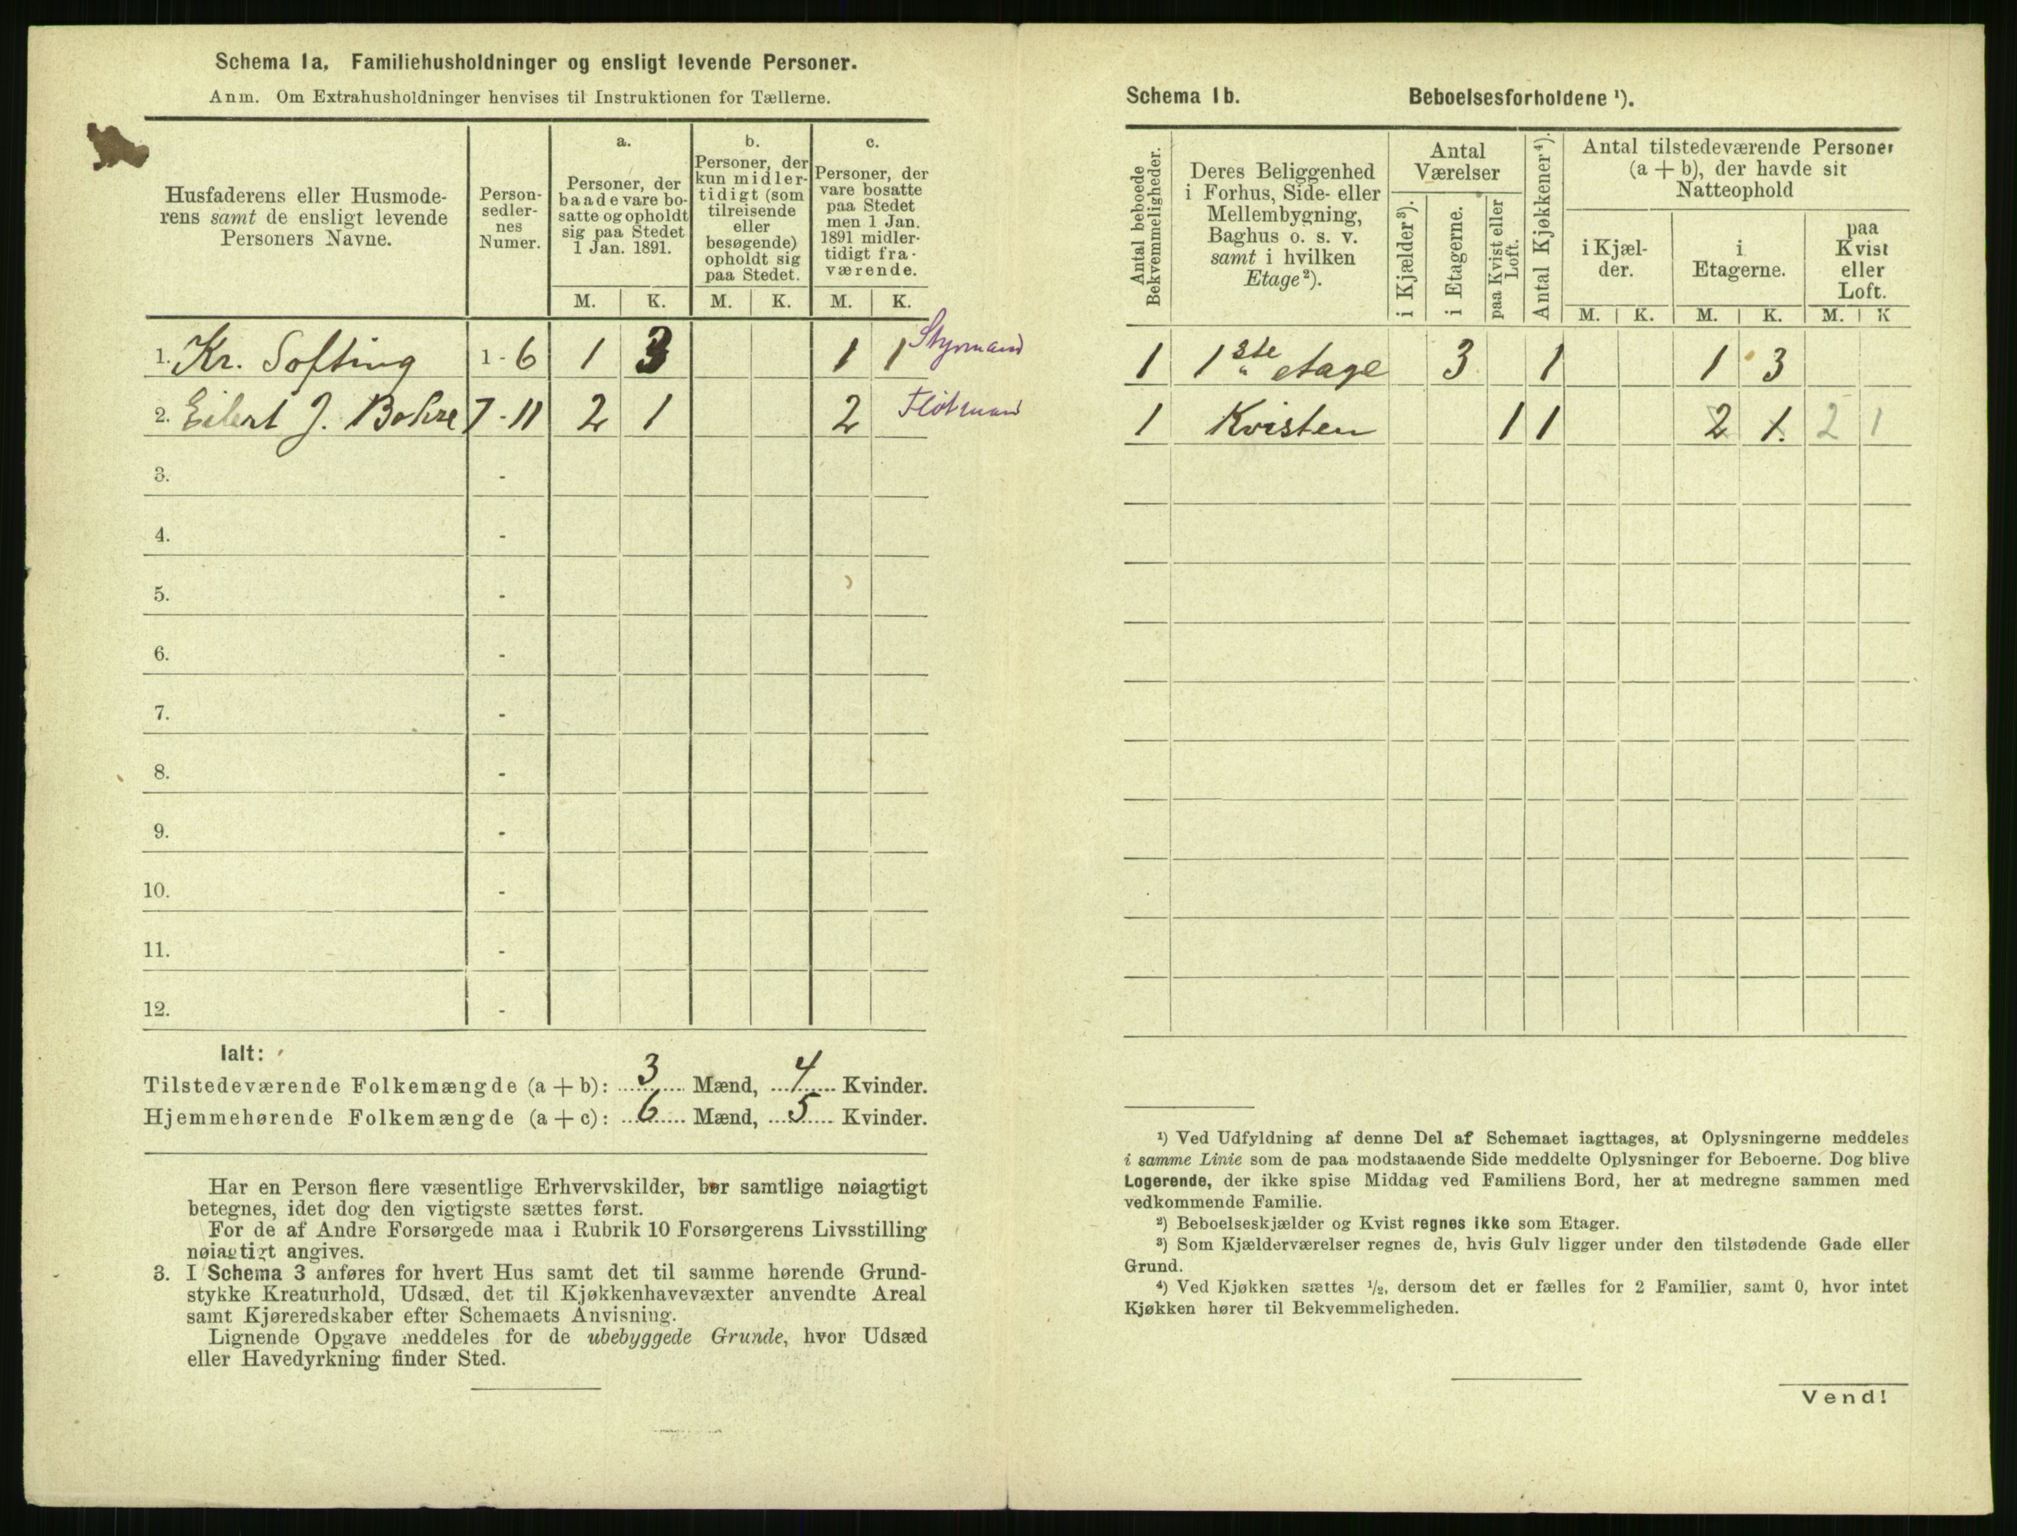 Schema 1a, Familiehusholdninger og ensligt levende Personer.
Anm. Om Extrahusholdninger henvises til Instruktionen for Tællerne.
Husfaderens eller Husmode-
rens samt de ensligt levende
Personers Navne.
Person-
sedler-
nes
Numer.
a.
Personer, der
baade vare bo-
satte og opholdt
sig paa Stedet
1 Jan. 1891.
b.
Personer, der
kun midler-
tidigt (som
tilreisende
eller
besøgende)
opholdt sig
paa Stedet.
c.
Personer, der
vare bosatte
paa Stedet
men 1 Jan.
1891 midler-
tidigt fra-
værende.
M. K. M. K. M. K.
1. Kr. Softing 1 - 6 1 3 1 1 Styrmand
2. Eilert J. 7 - 11 2 1 2
3. -
4. -
5. -
6. -
7. -
8. -
9. -
10. -
11. -
12. -
Ialt:
Tilstedeværende Folkemængde (a + b): 3 Mænd, 4 Kvinder.
Hjemmehørende Folkemængde (a + c): 6 Mænd, 5 Kvinder.
Har en Person flere væsentlige Erhvervskilder, bør samtlige nøiagtigt
betegnes, idet dog den vigtigste sættes først.
For de af Andre Forsørgede maa i Rubrik 10 Forsørgerens Livsstilling
nøiagtigt angives.
3. I Schema 3 anføres for hvert Hus samt det til samme hørende Grund-
stykke Kreaturhold, Udsæd, det til Kjøkkenhavevæxter anvendte Areal
samt Kjøreredskaber efter Schemaets Anvisning.
Lignende Opgave meddeles for de ubebyggede Grunde, hvor Udsæd
eller Havedyrkning finder Sted.
Schema 1b. Beboelsesforholdene ¹).
Antal beboede
Bekvemmeligheder.
Deres Beliggenhed
i Forhus, Side- eller
Mellembygning,
Baghus o. s. v.
samt i hvilken
Etage²).
Antal
Værelser
i Kjælder³).
i Etagerne.
paa Kvist eller
Loft.
Antal Kjøkkener⁴).
Antal tilstedeværende Personer
(a + b), der havde sit
Natteophold
i Kjæl-
der.
i
Etagerne.
paa
Kvist
eller
Loft.
M. K. M. K. M. K
1 1ste etage 3 1 1 3
1 Kvisten 1 1 2 1. 2 1
¹) Ved Udfyldning af denne Del af Schemaet iagttages, at Oplysningerne meddeles
i samme Linie som de paa modstaaende Side meddelte Oplysninger for Beboerne. Dog blive
Logerende, der ikke spise Middag ved Familiens Bord, her at medregne sammen med
vedkommende Familie.
²) Beboelseskjælder og Kvist regnes ikke som Etager.
³) Som Kjælderværelser regnes de, hvis Gulv ligger under den tilstødende Gade eller
Grund.
⁴) Ved Kjøkken sættes ½, dersom det er fælles for 2 Familier, samt 0, hvor intet
Kjøkken hører til Bekvemmeligheden.
Vend!